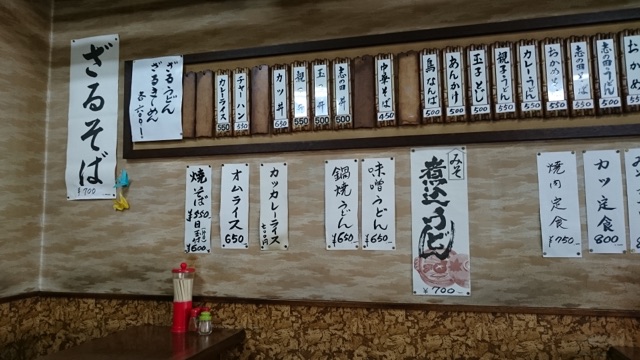 ざるそば
¥700
ざるうどん
ざるきしめん
各六百!
カレーライス
550
チャーハン
550
カツ丼
650
親子丼
550
玉丼
500
志の田丼
500
中華そば
450
鳥なんば
500
あんかけ
500
玉子とじ
500
親子うどん
550
カレーうどん
550
おかめそば
550
志の田そば
500
志の田うどん
500
おかめ
焼そば
¥550
¥600
オムライス
650
カツカレーライス
鍋焼うどん
¥650
味噌うどん
¥650
みそ
煮込うどん
¥700
焼肉定食
¥750
カツ定食
800